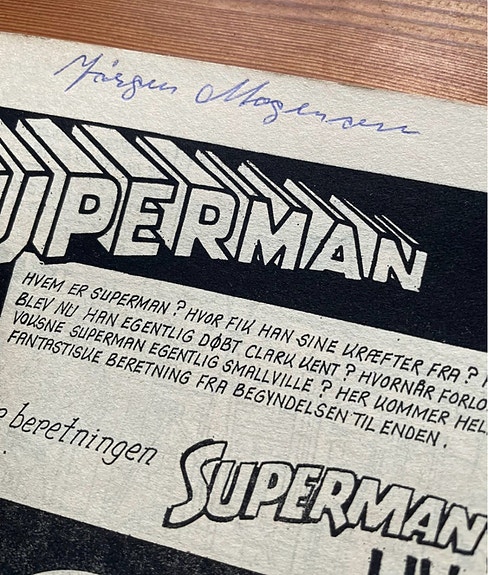 Jörgen Mogensen
SUPERMAN
HVEM ER SUPERMAN? HVOR FIK HAN SINE KRÆFTER FRA?
BLEV NU HAN EGENTLIG DØBT CLARK KENT? HVORNÅR FORLO
VOKSNE SUPERMAN EGENTLIG SMALLVILLE? HER KOMMER HEL
FANTASTISKE BERETNING FRA BEGYNDELSEN TIL ENDEN.
e beretningen
SUPERMAN